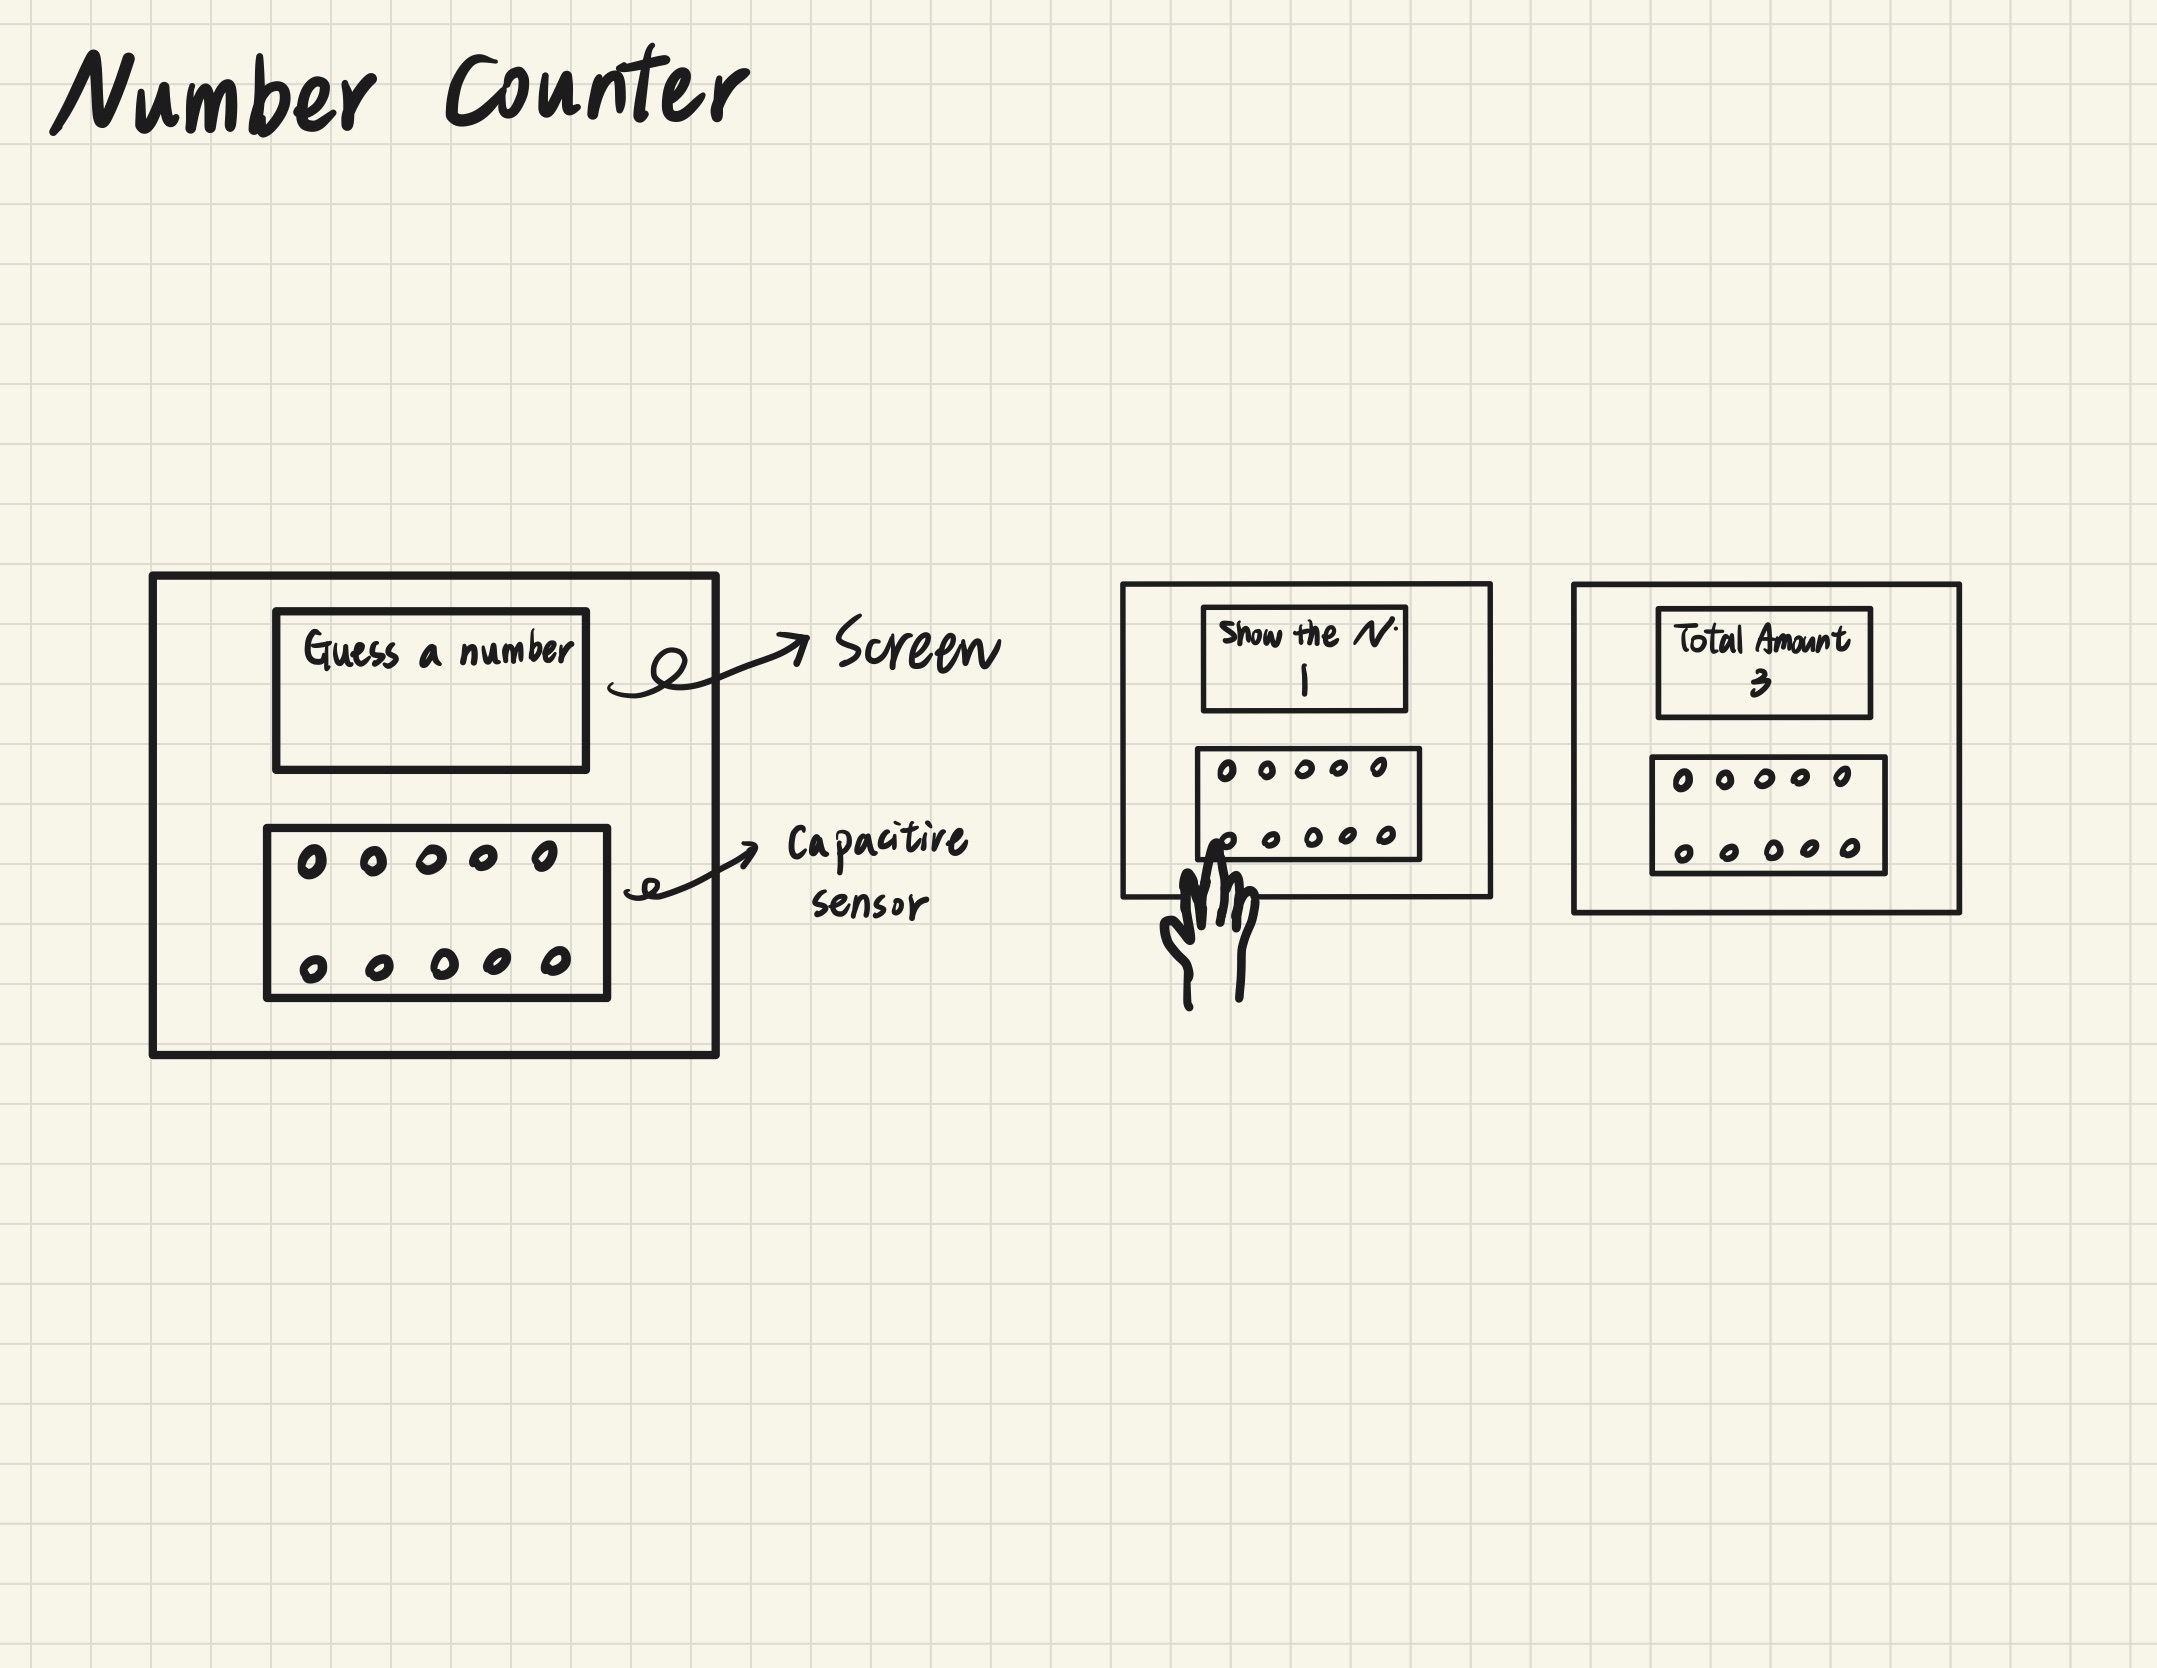 Number Counter
Guess a number
Screen
Capacitive
sensor
Show the N.
1
Total Amount
3